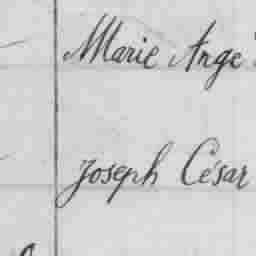 Marie Ange
Joseph César